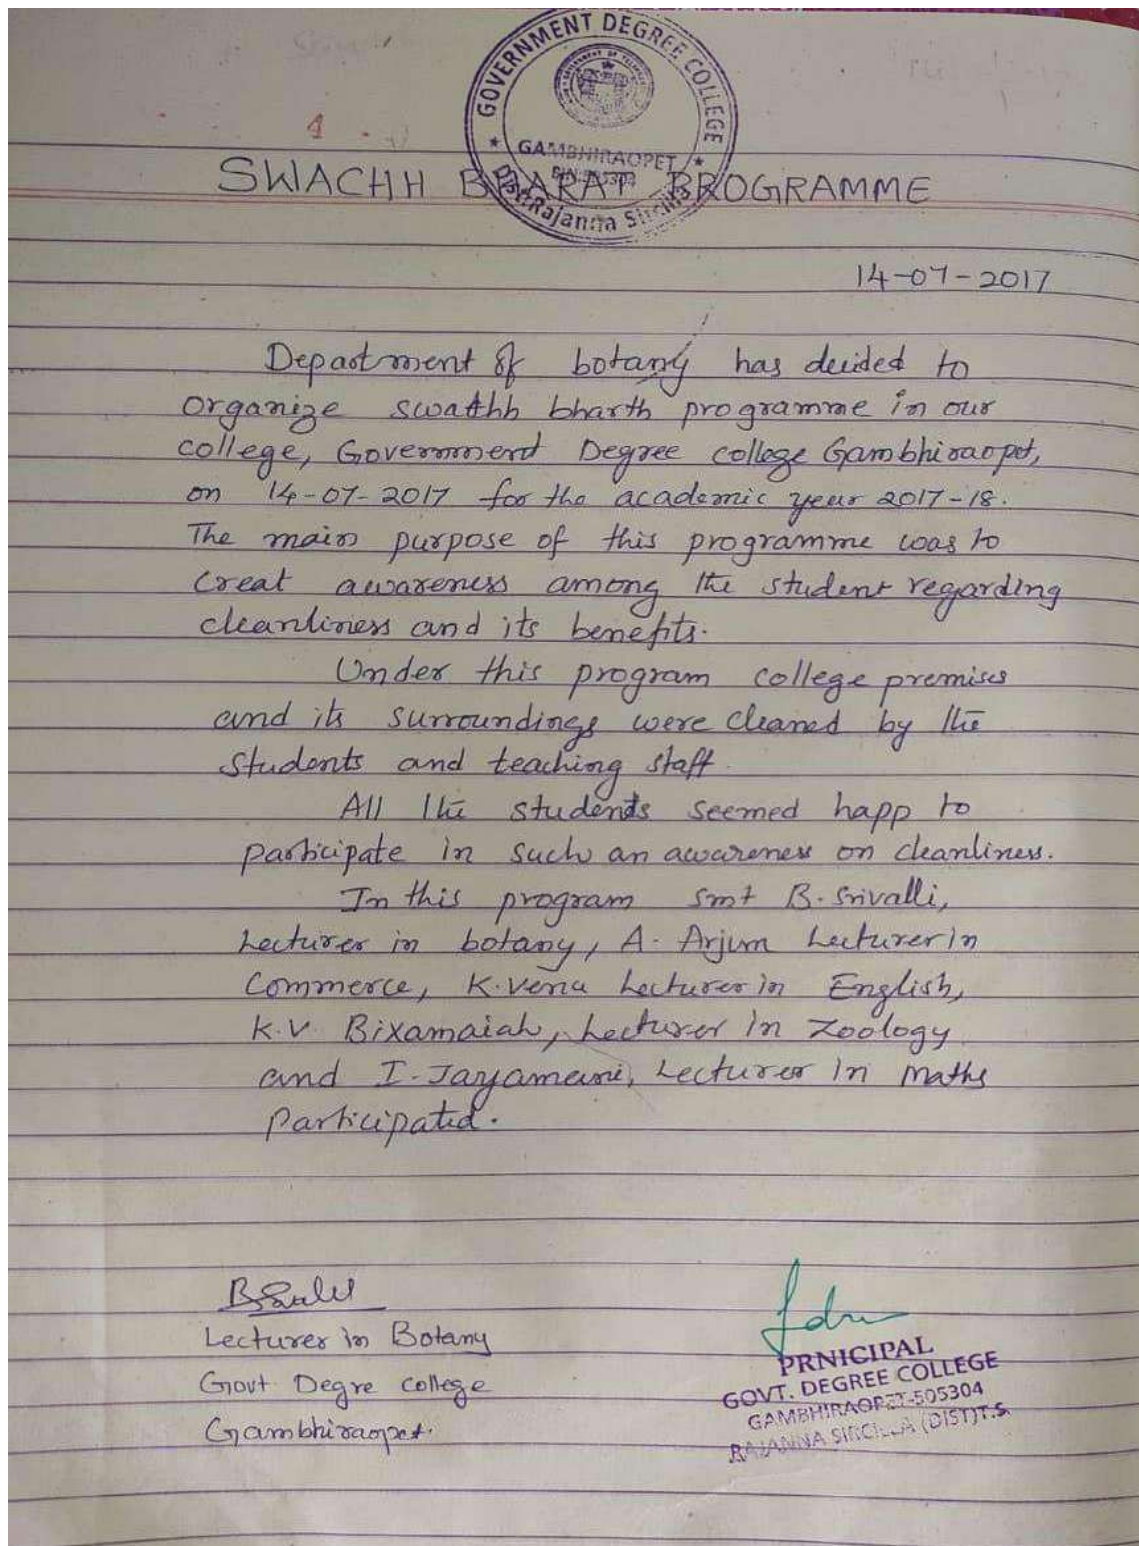 GOVERNMENT DEGREE COLLEGE
GAMBHIRAOPET
Dist:Rajanna Sircilla
SWACHH BHARAT PROGRAMME
14-07-2017
Department of botany has decided to
organize swathh bharth programme in our
college, Government Degree college Gambhiraopet,
on 14-07-2017 for the academic year 2017-18.
The main purpose of this programme was to
creat awareness among the student regarding
cleanliness and its benefits.
Under this program college premises
and its surroundings were cleaned by the
students and teaching staff.
All the students seemed happ to
participate in such an awareness on cleanliness.
In this program smt B. Srivalli,
Lecturer in botany, A. Arjun Lecturer in
Commerce, K.Vena Lecturer in English,
K.V. Bixamaiah, Lecturer in Zoology
and I. Jayamani, Lecturer in maths
participated.
Lecturer in Botany
Govt Degre college
Gambhiraopet.
PRNICIPAL
GOVT. DEGREE COLLEGE
GAMBHIRAOPET-505304
RAJANNA SIRCILLA (DIST)T.S.